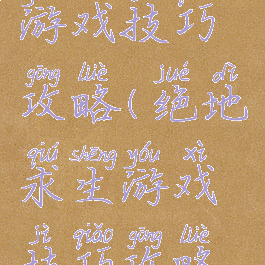 游戏技巧
gōng lüè jué dì
攻略(绝地
qiú shēng yóu xì
求生游戏
jì qiǎo gōng lüè
技巧攻略